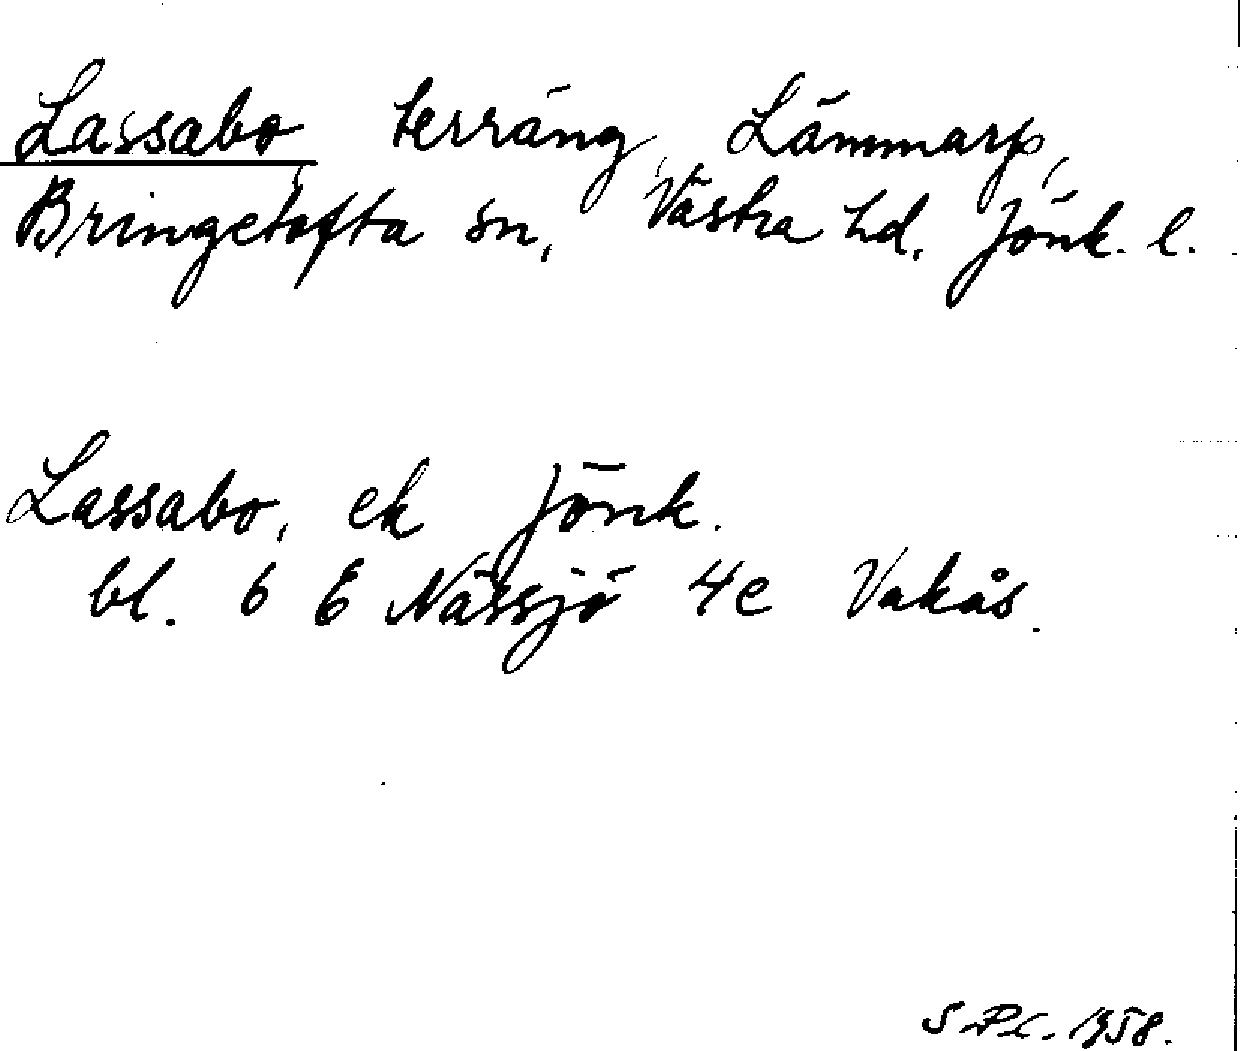 Lassabo terräng, Lämmarp,
Bringetofta sn, Västra hd, Jönk. l.
Lassabo, ek Jönk.
bl. 6 E Nässjö 4e Vakås.
1958.